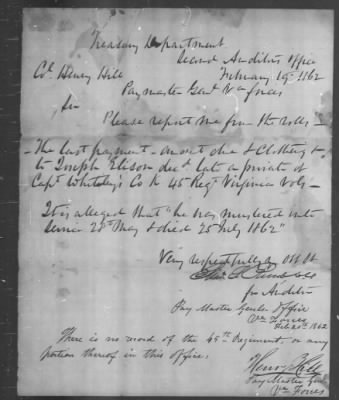 Treasury Department
Second Auditors Office
February 19th 1862
Col Henry Hill
Paymaster Genl Va forces
Sir
Please report me from the rolls
The last payment - amount due & Clothing &
to Joseph Elison decd late a private of
Capt Co K 45 Regt Virginia Vols -
It is alleged that "he was mustered into
service 28th May & died 25 July 1862"
Very respectfully
for Auditor
Pay Master Genls Office
Va Forces
Feb 20th 1862
There is no record of the 45th Regiment or any
portion thereof in this office.
Henry Hill
Pay Master Genl
Va Forces